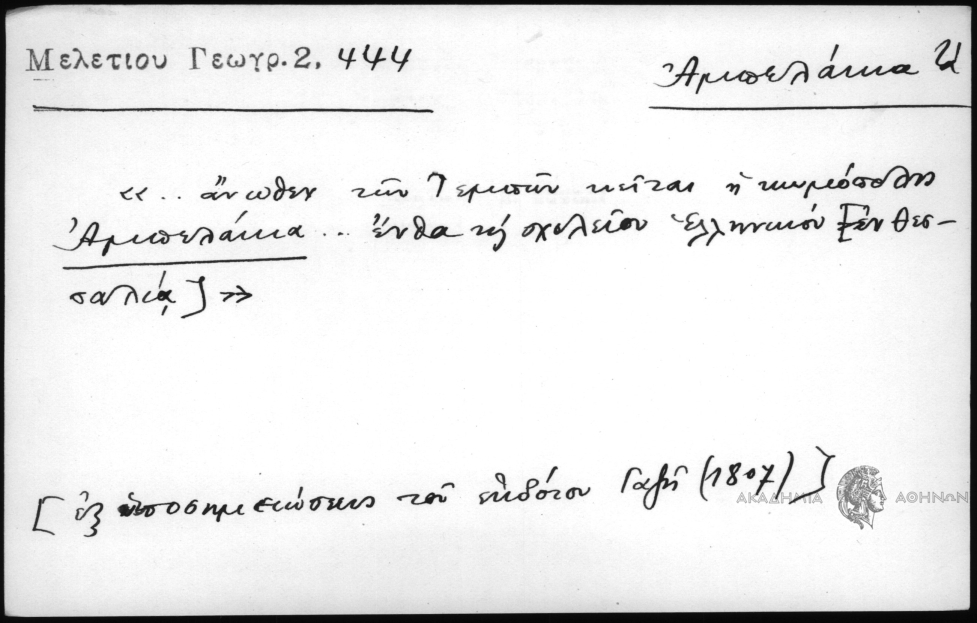 Μελετιου Γεωγρ.2, 444
Ἀμπελάκια
«.. ἄνωθεν τῶν Τεμπῶν κεῖται ἡ κωμόπολις
Ἀμπελάκια ... ἔνθα σχολεῖον Ἑλληνικόν [ἐν Θεσ-
σαλίᾳ] »
[ἐξ ὑποσημειώσεως τοῦ ἐκδότου Γαζῆ (1807)]
ΑΚΑΔΗΜΙΑ ΑΘΗΝΩΝ